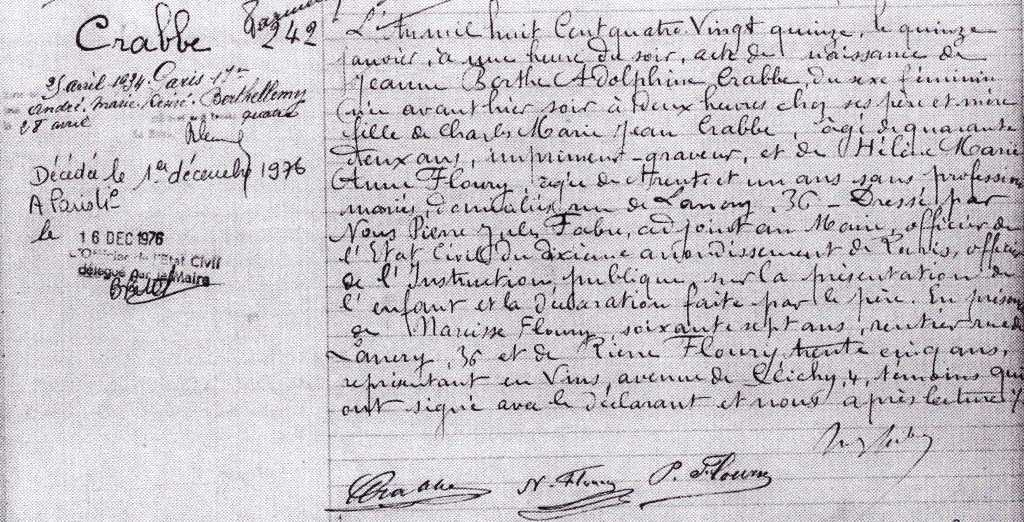 Crabbe
242
25 avril 1934. Paris 17me
André. Marie. René. Berthellemy
28 avril quatre
Décédée le 1er décembre 1976
A Paris 11e
le 16 DEC 1976
L'Officier de l'Etat Civil
délégué par le Maire
L'An mil huit Cent quatre Vingt quinze, le quinze
janvier, à une heure du soir, acte de naissance de
Jeanne Berthe Adolphine Crabbe, du sexe féminin
née avant hier soir à deux heures chez ses père et mère
fille de Charles Marie Jean Crabbe, âgé de quarante
deux ans, imprimeur-graveur, et de Hélène Marie
Anne Floury, agée de trente et un ans sans profession
mariés, domiciliés rue de Lancry, 36 - Dressé par
Nous Pierre Jules Fabre, adjoint au Maire, officier de
l'Etat Civil du dixième arrondissement de Paris, officier
de l'Instruction publique sur la présentation de
l'enfant et la déclaration faite par le père. En présence
de Narcisse Floury soixante sept ans, rentier rue de
Lancry, 36 et de Pierre Floury, trente cinq ans,
représentant en Vins, avenue de Clichy, 4, témoins qui
ont signé avec le déclarant et nous après lecture
Crabbe N. Floury P. Floury